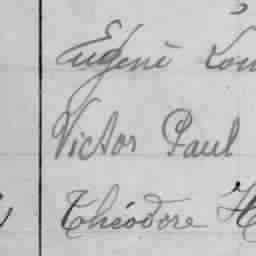 Eugène Lou
Victor Paul
Théodore H